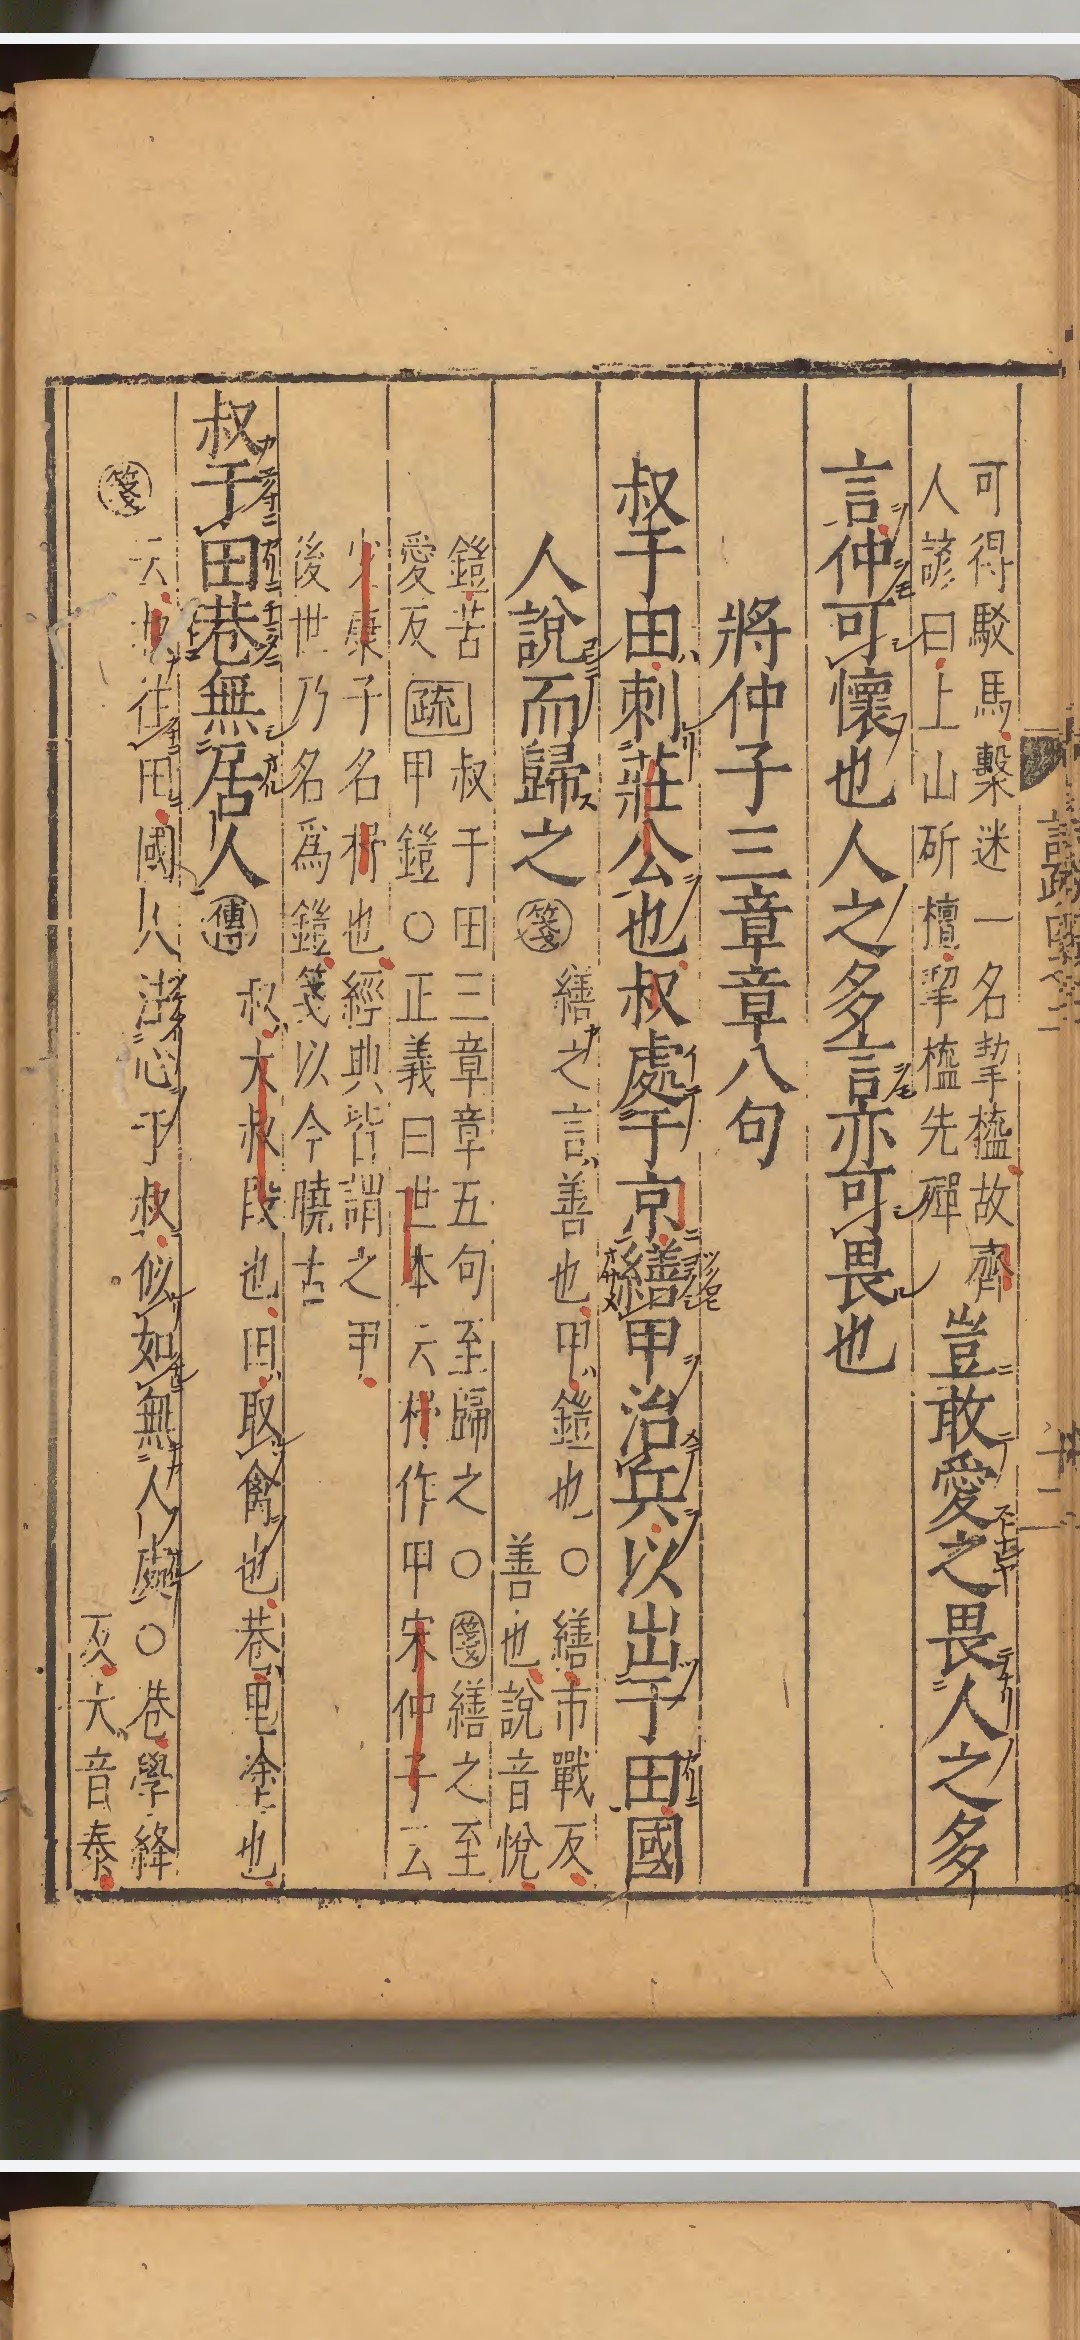 可得駁馬繫迷一名挈橀故齊
人諺曰上山斫檀挈橀先殫
豈敢愛之畏人之多
言仲可懷也人之多言亦可畏也
將仲子三章章八句
叔于田刺莊公也叔處于京繕甲治兵以出于田國
人說而歸之
箋
繕之言善也甲鎧也○繕市戰反
善也說音悅
鎧苦
愛反
疏
叔于田三章章五句至歸之○箋繕之至
甲鎧○正義曰世本云杼作甲宋仲子云
少康子名杼也經典皆謂之甲
後世乃名爲鎧箋以今曉古
叔于田巷無居人
傳
叔大叔段也田取禽也巷里塗也
箋
云叔往田國人注心于叔似如無人處○巷學絳
反大音泰